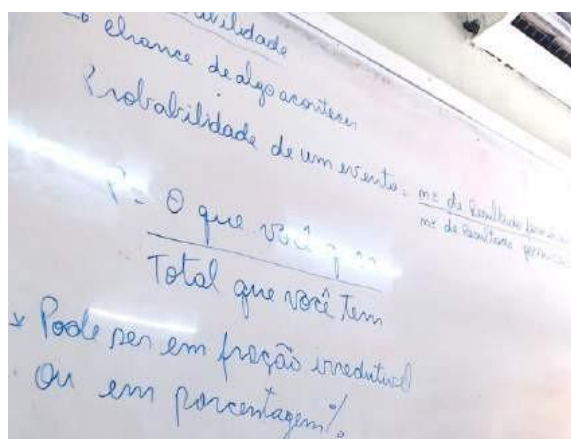 chance de algo acontecer
Probabilidade de um evento = nº de Resultados
nº de Resultados
P = O que você
Total que você Tem
* Pode ser em fração irredutível
ou em porcentagem %.